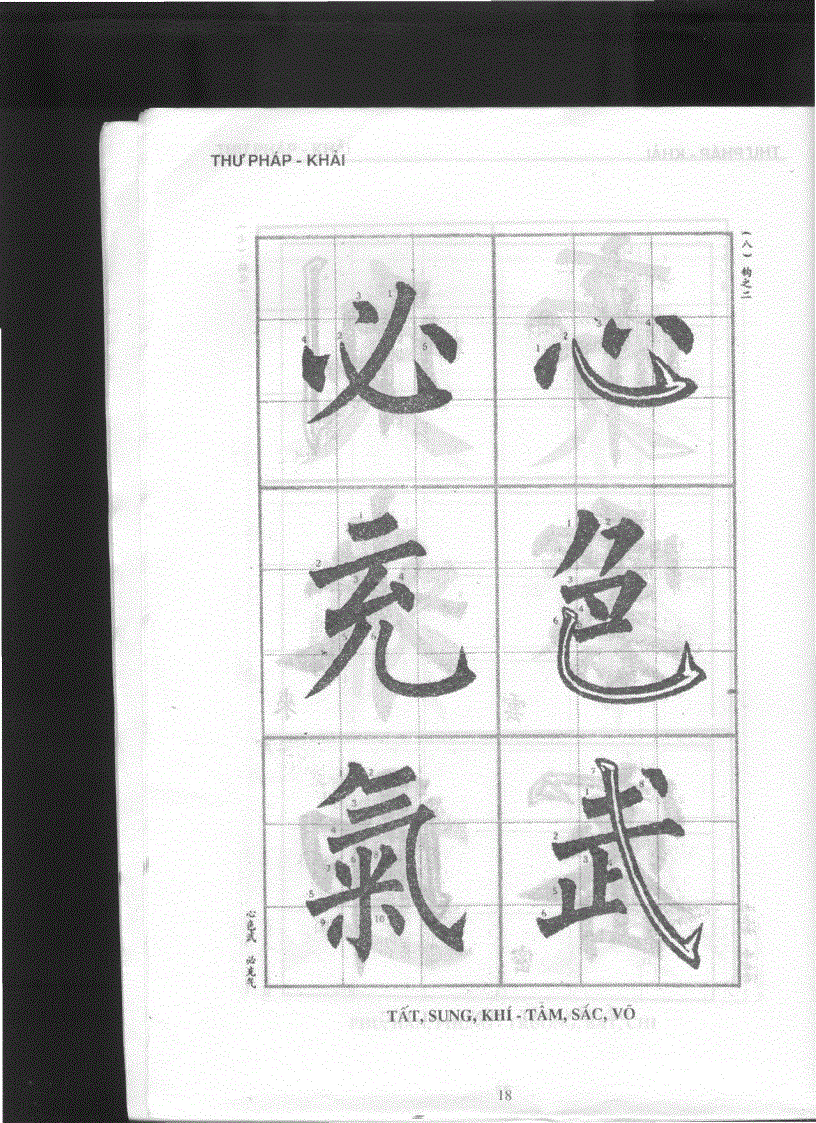 THƯ PHÁP - KHẢI
(八) 鈎之二
必 心
充 色
氣 武
心色武 必充气
TẤT, SUNG, KHÍ - TÂM, SẮC, VÕ
18